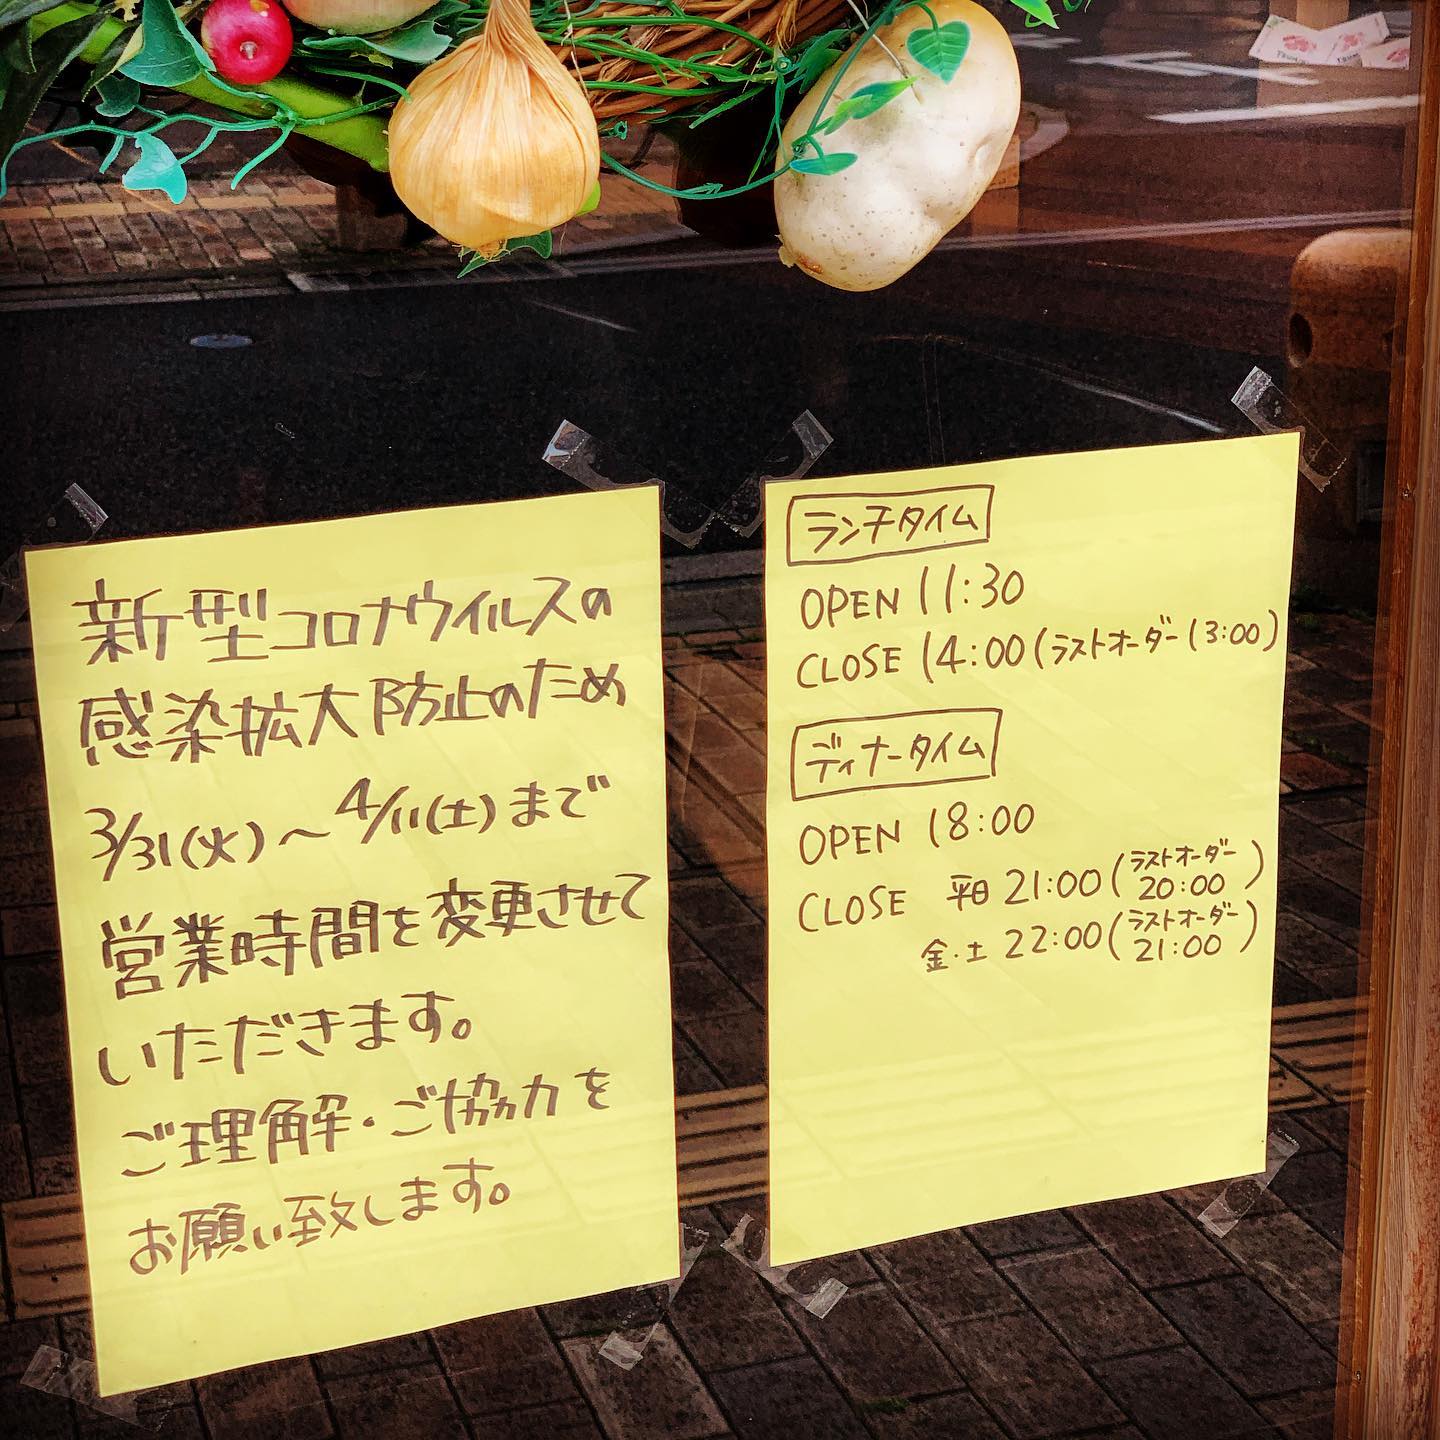 新型コロナウイルスの
感染拡大防止のため
3/31(火)～4/11(土)まで
営業時間を変更させて
いただきます。
ご理解・ご協力を
お願い致します。
ランチタイム
OPEN 11:30
CLOSE 14:00(ラストオーダー13:00)
ディナータイム
OPEN 18:00
CLOSE 平日 21:00(ラストオーダー 20:00)
金・土 22:00(ラストオーダー 21:00)